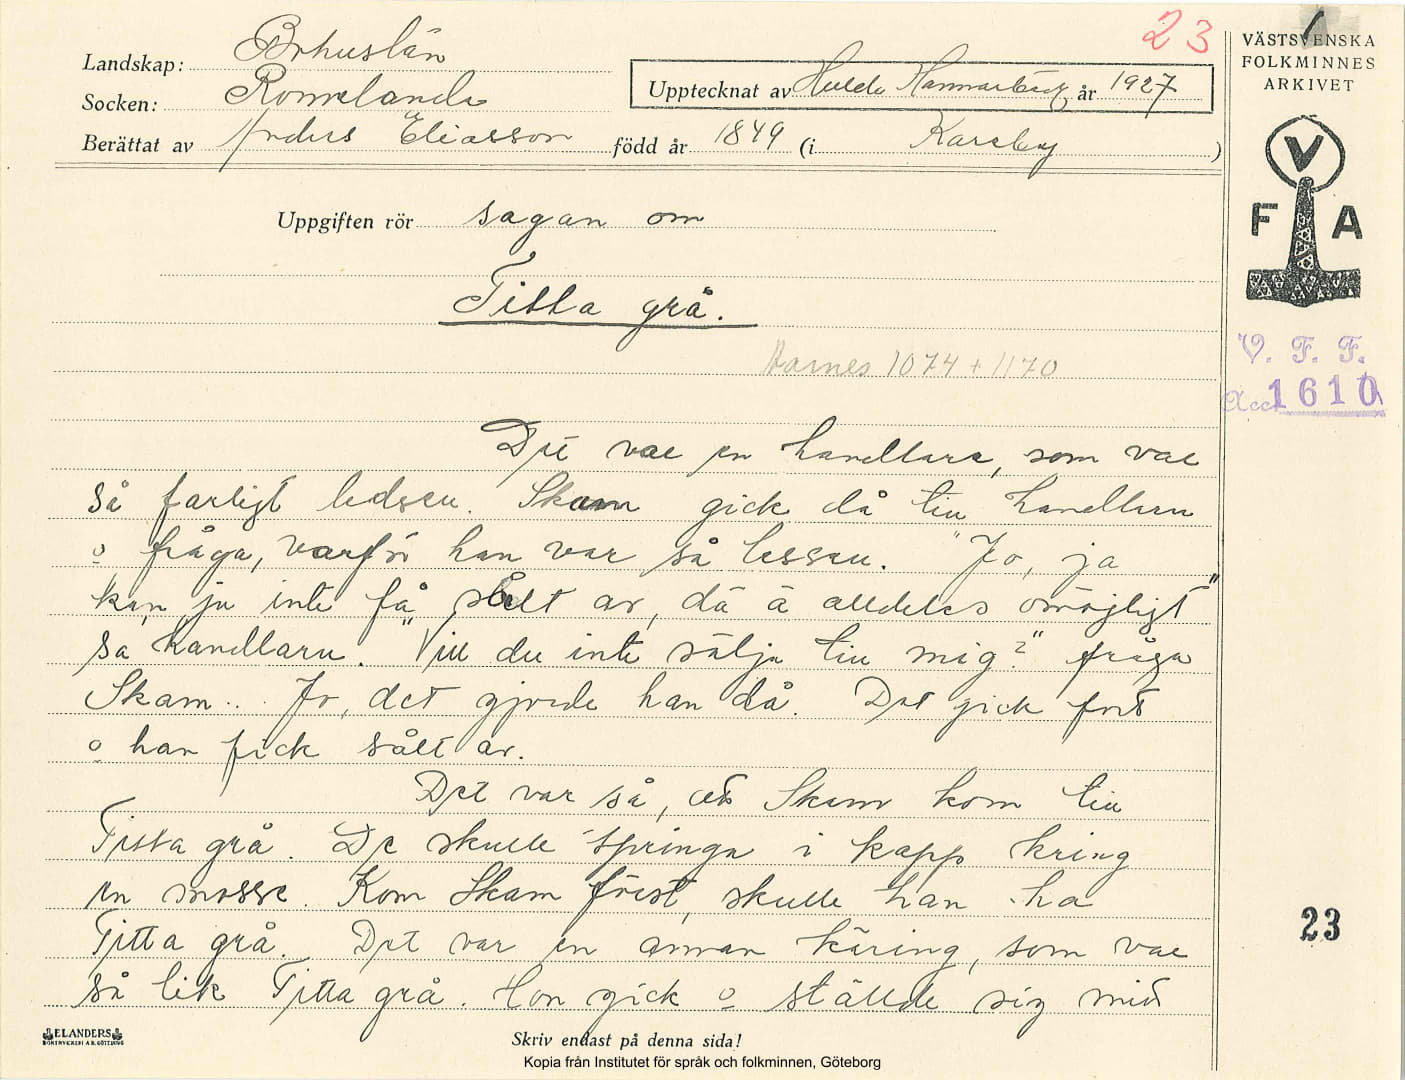 23
Landskap: Bohuslän
Socken: Romelanda
Upptecknat av Hulda Hammarbäck år 1927
Berättat av Anders Eliasson född år 1849 (i Kareby)
VÄSTSVENSKA
FOLKMINNES
ARKIVET
V
F A
Uppgiften rör sagan om
Titta grå.
Aarnes 1074 + 1170
V. F. F.
Acc. 1610
Det var en handlare, som var
så farligt ledsen. Skam gick då till handlarn
o fråga, varför han var så lessen. "Jo, ja
kan ju inte få sålt av, dä ä alldeles omöjligt"
sa handlarn. "Vill du inte sälja till mig?" fråga
Skam. Jo, det gjorde han då. Det gick fort
o han fick sålt av.
Det var så, att Skam kom till
Titta grå. De skulle springa i kapp kring
en mosse. Kom Skam först, skulle han ha
Titta grå. Det var en annan käring, som var
så lik Titta grå. Hon gick o ställde sig mid
23
ELANDERS
BOKTRYCKERI A.B. GÖTEBORG
Skriv endast på denna sida!
Kopia från Institutet för språk och folkminnen, Göteborg